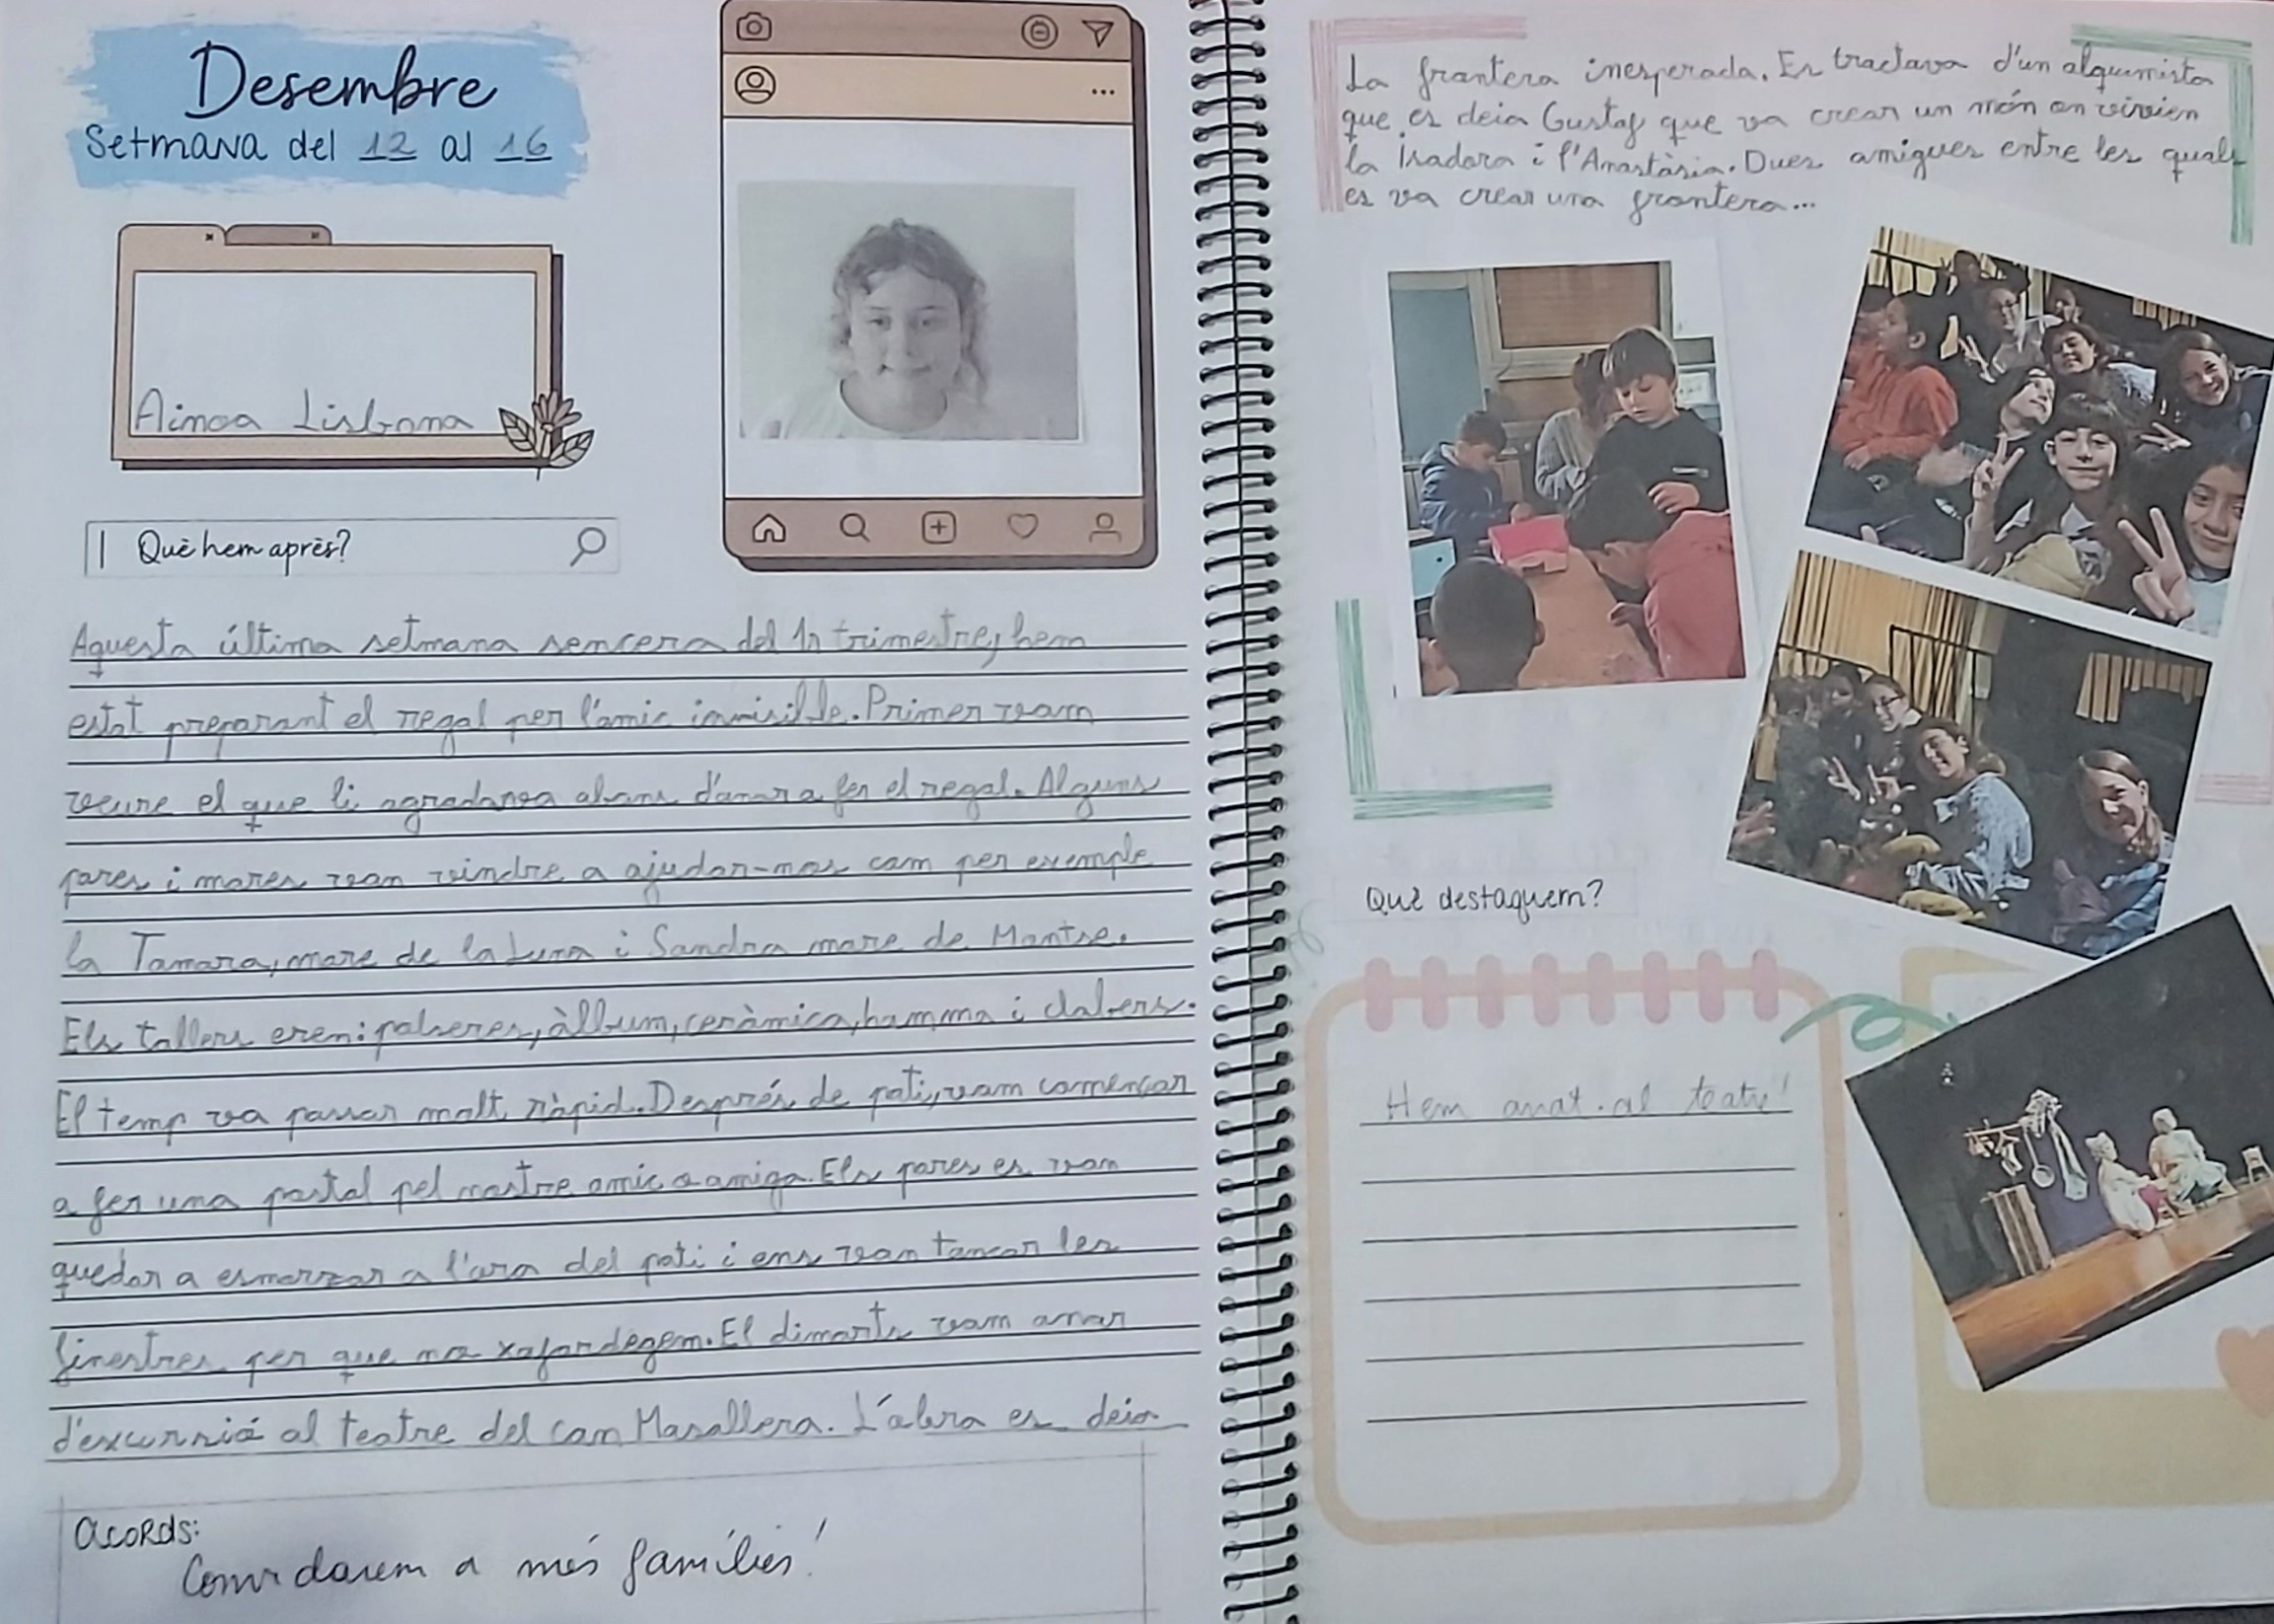 Desembre
Setmana del 12 al 16
Ainoa Lisbona
Què hem après?
Aquesta última setmana sencera del 1r trimestre, hem
estat preparant el regal per l'amic invisible. Primer vam
veure el que li agradava abans d'anar a fer el regal. Alguns
pares i mares van vindre a ajudar-nos com per exemple
la Tamara, mare de la Luna i Sandra mare de Montse.
Els tallers eren: polseres, àlbum, ceràmica, hamma i clabers.
El temp va passar molt ràpid. Després de pati, vam començar
a fer una postal pel nostre amic o amiga. Els pares es van
quedar a esmorzar a l'ora del pati i ens van tancar les
finestres per que no xafardegem. El dimarts vam anar
d'excurnió al teatre del can Masallera. L'abra es deia
acords:
Convidarem a més famílies!
La frontera inesperada. Es tractava d'un alquimista
que es deia Gustaf que va crear un món on vivien
la Isadora i l'Anastàsia. Dues amigues entre les quals
es va crear una frontera...
Què destaquem?
Hem anat al teatre!